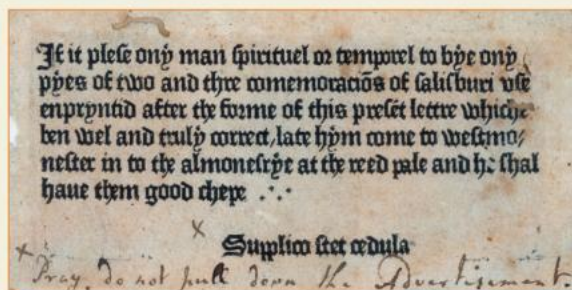 If it plese ony man spirituel or temporel to bye ony
pyes of two and thre comemoraciōs of salisburi vse
enpryntid after the forme of this preset lettre whiche
ben wel and truly correct, late hym come to westmo-
nester in to the almonesrye at the reed pale and he shal
haue them good chepe .·.
Supplico stet cedula
x
x Pray, do not pull down the Advertisement.